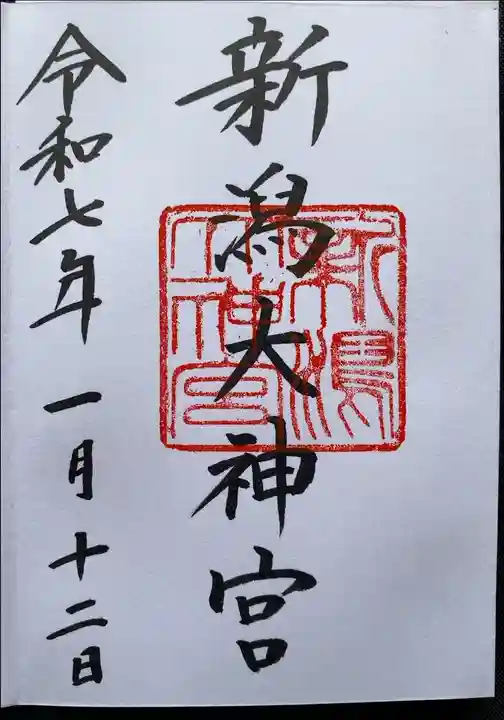 新潟大神宮
令和七年一月十二日
新潟大神宮